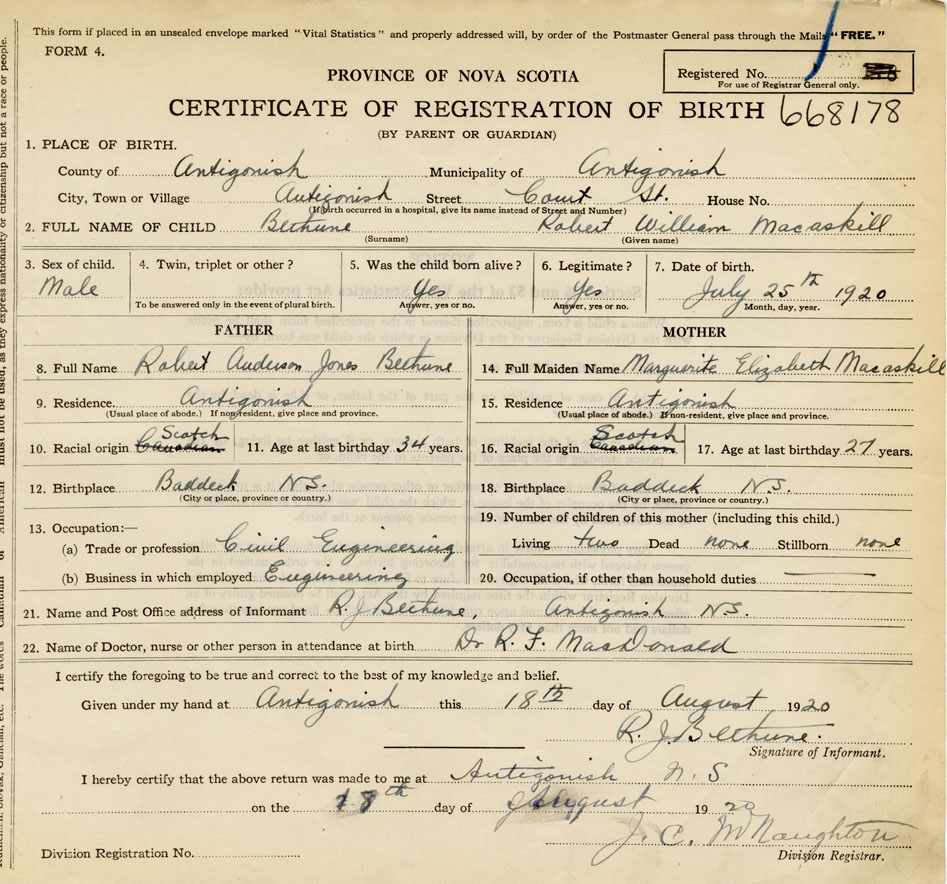 This form if placed in an unsealed envelope marked "Vital Statistics" and properly addressed will, by order of the Postmaster General pass through the Mails "FREE."
FORM 4.
PROVINCE OF NOVA SCOTIA
Registered No.
For use of Registrar General only.
CERTIFICATE OF REGISTRATION OF BIRTH 668178
(BY PARENT OR GUARDIAN)
1. PLACE OF BIRTH.
County of Antigonish Municipality of Antigonish
City, Town or Village Antigonish Street Court St. House No.
(If birth occurred in a hospital, give its name instead of Street and Number)
2. FULL NAME OF CHILD Bethune Robert William Macaskill
(Surname) (Given name)
3. Sex of child. 4. Twin, triplet or other? 5. Was the child born alive? 6. Legitimate? 7. Date of birth.
Male Yes Yes July 25th 1920
To be answered only in the event of plural birth. Answer, yes or no. Answer, yes or no. Month, day, year.
FATHER MOTHER
8. Full Name Robert Anderson Jones Bethune 14. Full Maiden Name Marguerite Elizabeth Macaskill
9. Residence. Antigonish 15. Residence Antigonish
(Usual place of abode.) If non-resident, give place and province. (Usual place of abode.) If non-resident, give place and province.
Scotch Scotch
10. Racial origin Canadian 11. Age at last birthday 34 years. 16. Racial origin Canadian 17. Age at last birthday 27 years.
12. Birthplace Baddeck N.S. 18. Birthplace Baddeck N.S.
(City or place, province or country.) (City or place, province or country.)
13. Occupation:— 19. Number of children of this mother (including this child.)
(a) Trade or profession Civil Engineering Living two Dead none Stillborn none
(b) Business in which employed Engineering 20. Occupation, if other than household duties
21. Name and Post Office address of Informant R. J Bethune, Antigonish N.S.
22. Name of Doctor, nurse or other person in attendance at birth Dr R. F. MacDonald
I certify the foregoing to be true and correct to the best of my knowledge and belief.
Given under my hand at Antigonish this 18th day of August 1920
R. J. Bethune.
Signature of Informant.
I hereby certify that the above return was made to me at Antigonish N. S
on the 18th day of August 1920
J. C. McNaughton
Division Registration No. Division Registrar.